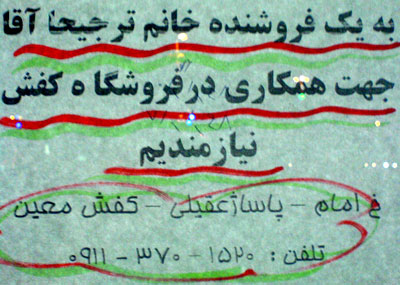 به یک فروشنده خانم ترجیحا آقا
جهت همکاری در فروشگاه کفش
نیازمندیم
خ امام - پاساژ عقیلی - کفش معین
تلفن : ۱۵۲۰ - ۳۷۰ - ۰۹۱۱